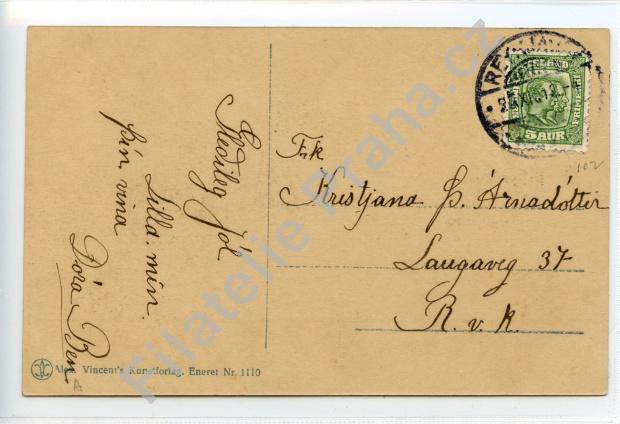 Gleðileg Jól
Lilla. mín.
þín. vina
Dóra Ben
Frk
Kristjana Þ. Árnadóttir
Laugaveg 37
R. v. k.
ISLAND
5 AUR
FRIMERKI
102
Alex. Vincent's Kunstforlag. Eneret Nr. 1110
Filatelie Praha.cz